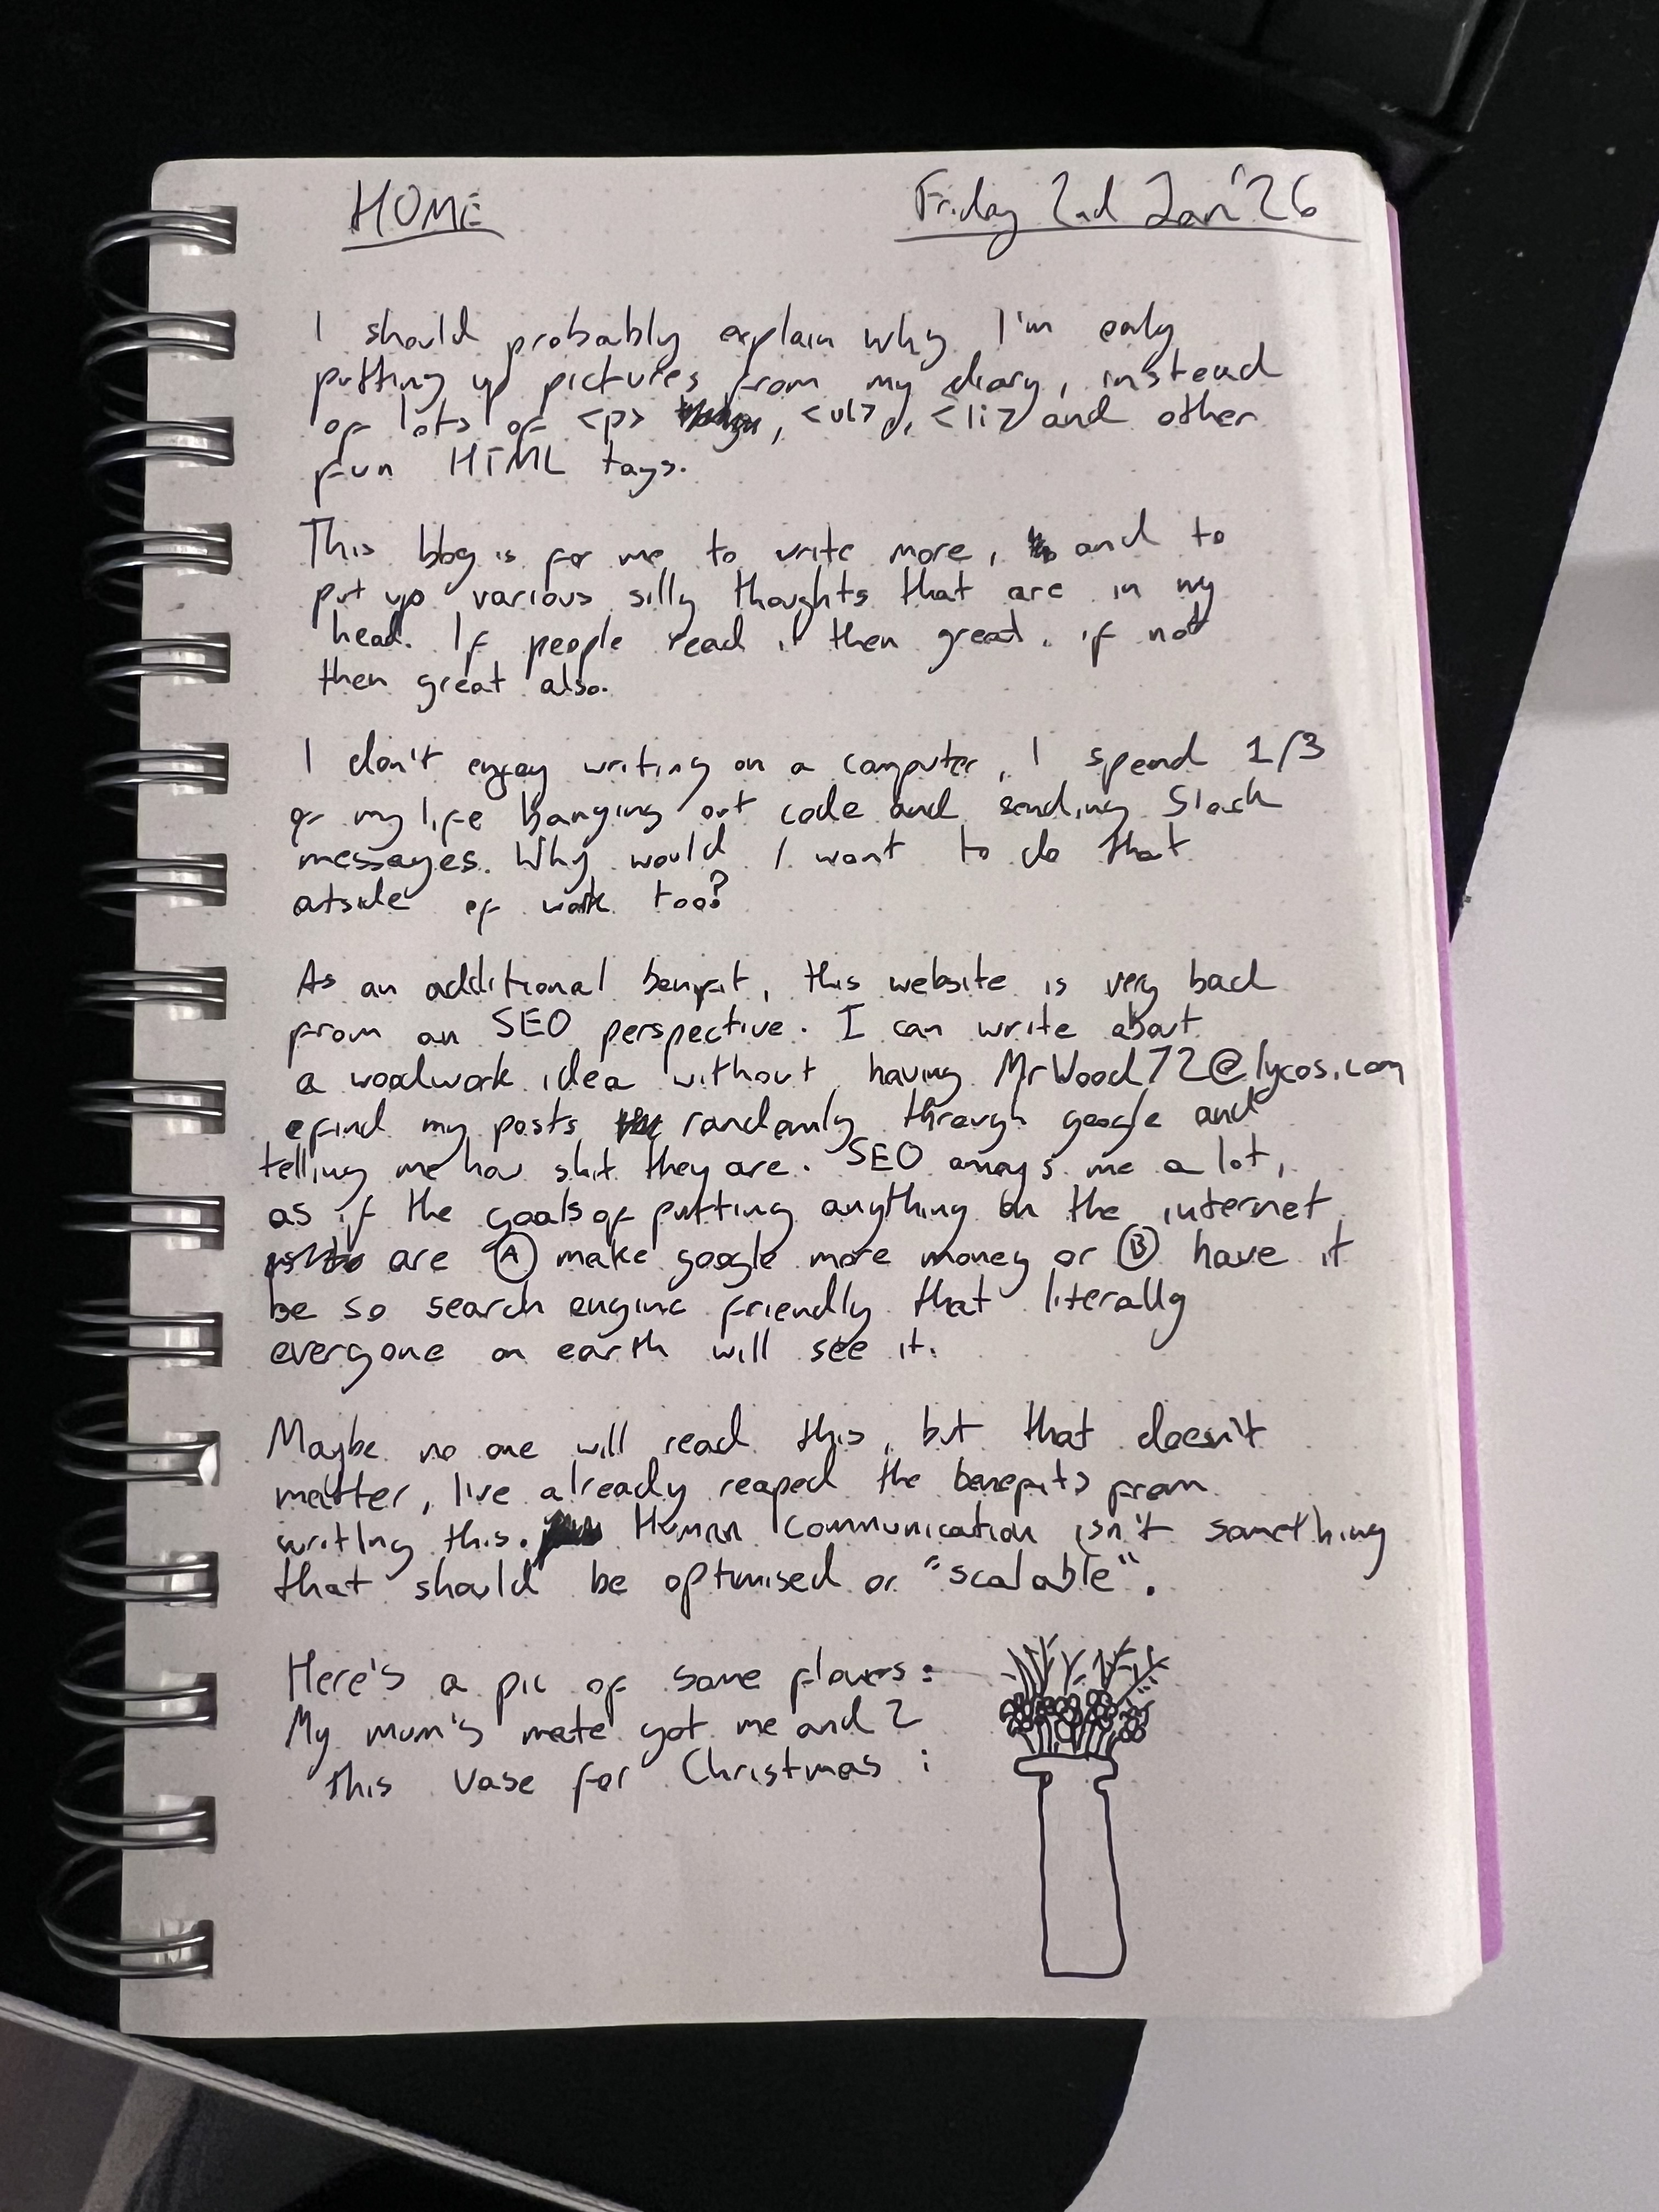 HOME
Friday 2nd Jan '26
I should probably explain why I'm only
putting up pictures from my diary, instead
of lots of <p> , <ul>, <li> and other
fun HTML tags.
This blog is for me to write more, and to
put up various silly thoughts that are in my
head. If people read it then great. if not
then great also.
I don't enjoy writing on a computer, I spend 1/3
of my life banging out code and sending Slack
messages. Why would I want to do that
outside of work too?
As an additional benefit, this website is very bad
from an SEO perspective. I can write about
a woodwork idea without having MrWood72@lycos.com
find my posts randomly through google and
telling me how shit they are. SEO annoys me a lot,
as if the goals of putting anything on the internet
are A make google more money or B have it
be so search engine friendly that literally
everyone on earth will see it.
Maybe no one will read this, but that doesn't
matter, I've already reaped the benefits from
writing this. Human communication isn't something
that should be optimised or "scalable".
Here's a pic of some flowers:
My mum's mate got me and 2
this vase for Christmas :